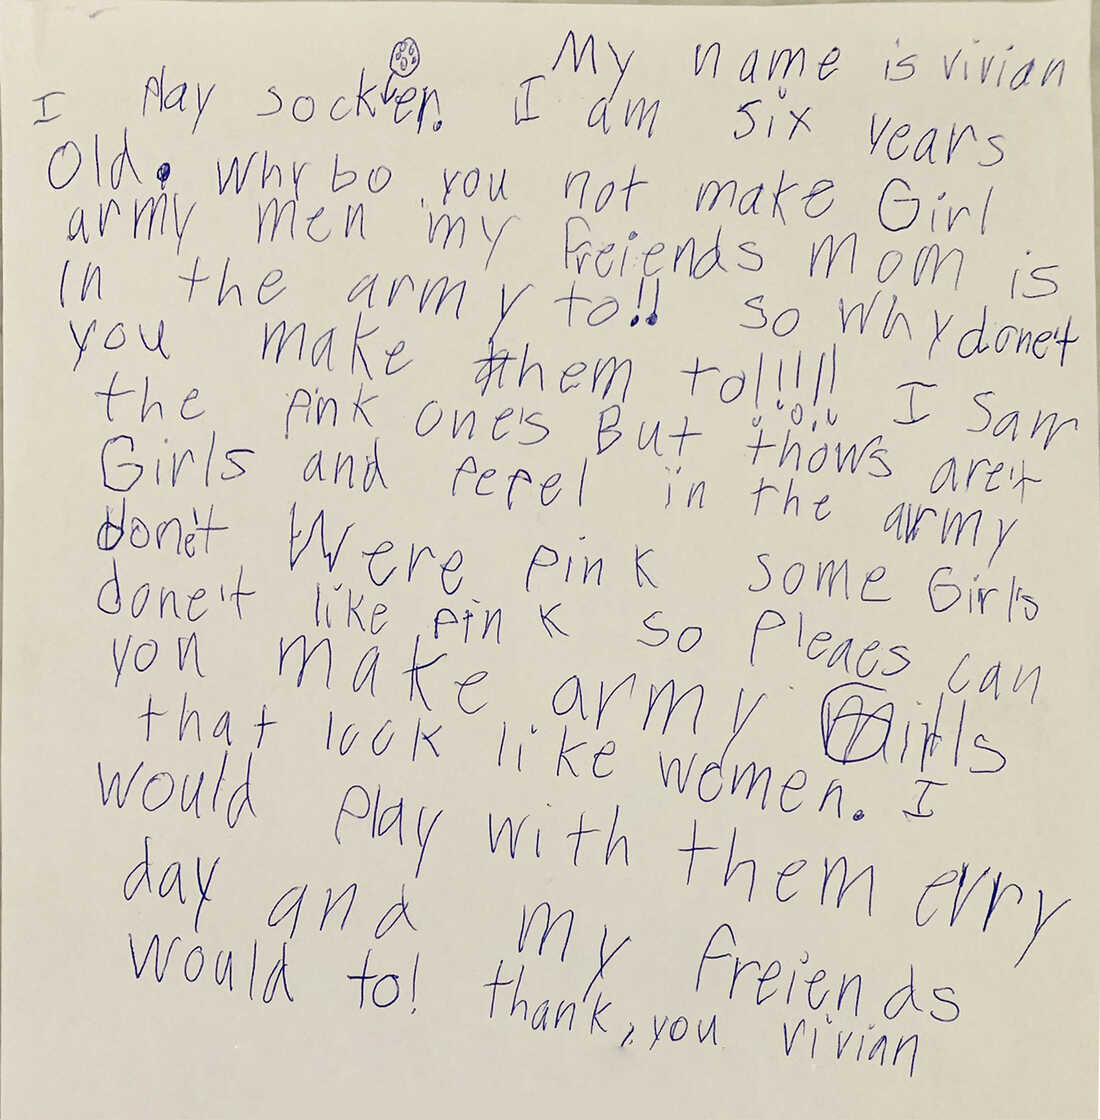 My name is vivian
I play socker. I am six years
Old. Why bo you not make Girl
army men my freiends mom is
in the army to!! so why done't
you make them to!!!!! I Saw
the pink one's But thows are't
Girls and pepel in the army
done't Were pink some Girl's
done't like pink so pleaes can
you make army Girls
that look like women. I
would play with them evry
day and my freiends
would to! thank, you vivian